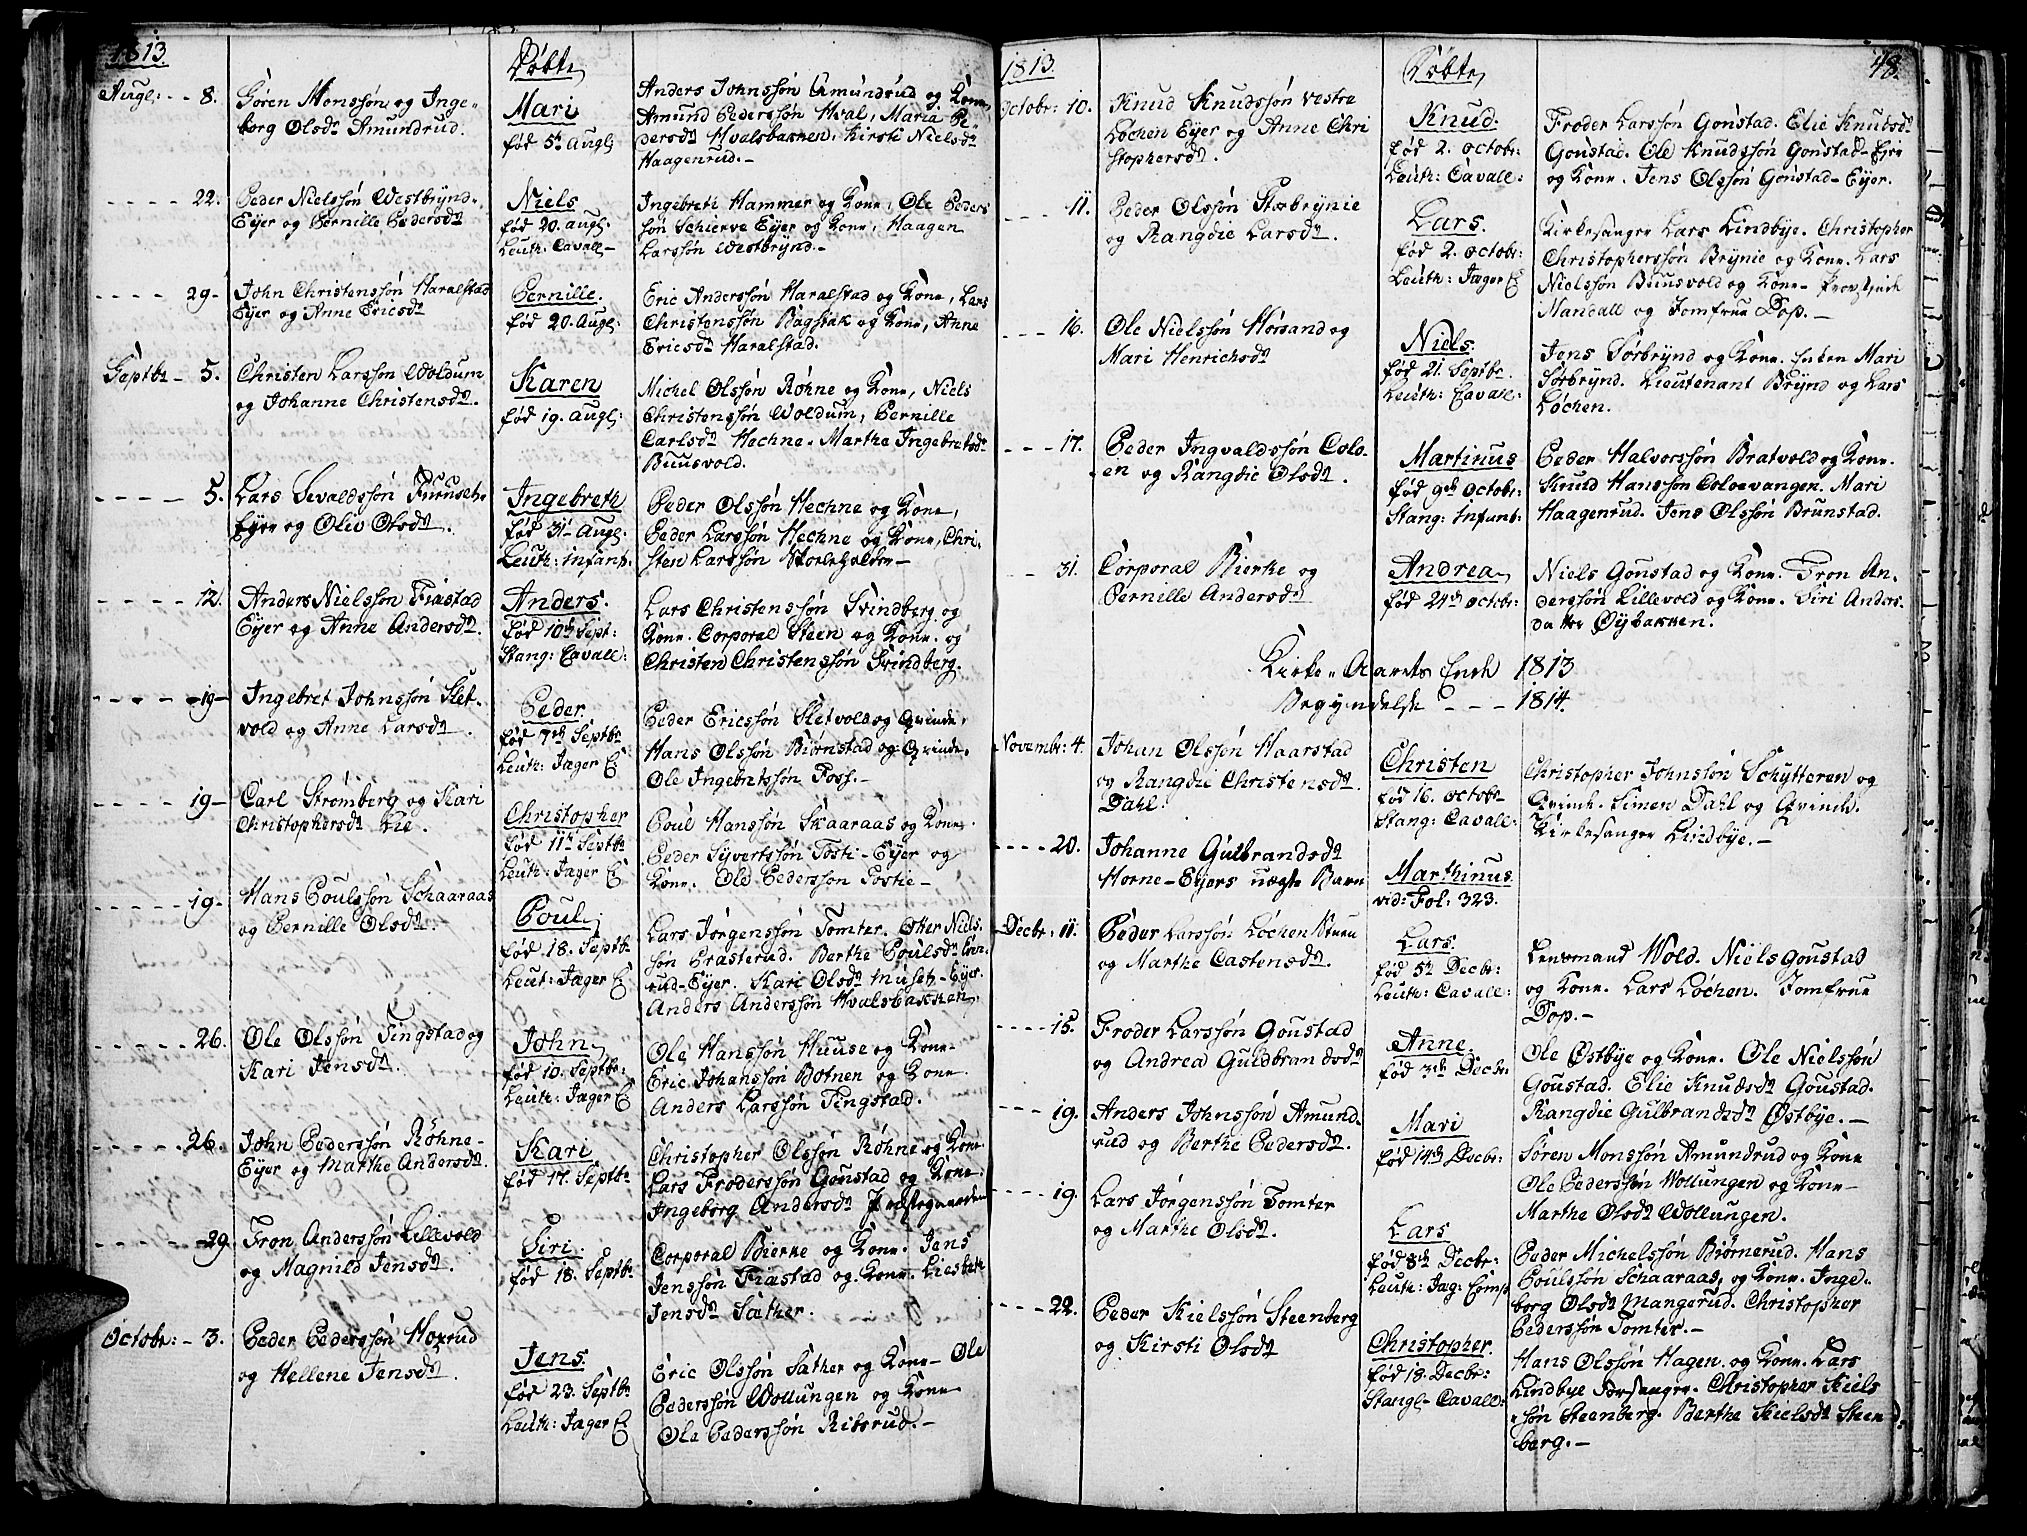 1813.
Døbte
Augl: - - 8.
Sören Monssön og Inge„
borg Olsdr Amundrud.
Mari
fød 5te Augl:
Anders Johnssön Amundrud og Kone,
Amund Pederssön Hval, Maria Pe
dersdr Hvalsbakken, Kirsti Nielsdr
Haagenrud. -
22.
Peder Nielssön Westbrÿnd-
Eÿer og Pernille Pedersdr
Niels
fød 20. augl.
Leuth: Cavall-
Ingebreth Hammer og Kone, Ole Peders
sön Schierve Eÿer og Kone, Haagen
Larssön Westbrÿnd.-
29-
John Christenssön Haralstad
Eÿer og Anne Ericsdr
Pernille.
fød 20. Augl:
Eric Anderssön Haralstad og Kone, Lars
Christenssön Bagstak og Kone, Anne
Ericsdr Haralstad.
Septbr - 5.
Christen Larssön Woldum
og Johanne Christensdr.
Karen
fød 19. augl:
Michel Olssön Röhne og Kone, Niels
Christenssön Woldum, Pernille
Carlsdr Hechne. Marthe Ingebretsdr
Buusvold.
5.
Lars Sevaldssön
Eÿer og Oliv Olsdr.
Ingebreth
fød 31te Augl:
Leuth: infant.
Peder Olssön Hechne og Kone,
Peder Larssön Hechne og Kone, Chri-
sten Larssön
12.
Anders Nielssön Fiastad
Eÿer og Anne Andersdr.
Anders.
fød 10de Sept:
Stang: Cavall:
Lars Christenssön Svindberg og
Kone. Corporal Steen og Kone. og
Christen Christenssön Svindberg.
-19-
Ingebret Johnssön Slet-
vold og Anne Larsdr.
Peder.
fød 7de Septbr
Leuth: Jæger C
Peder Ericssön Sletvold og Qvinde,
Hans Olssön Biørnstad og Qvinde,
Ole Ingebretssön Foss.-
19-
Carl Strömberg og Kari
Christophersdr Lie.
Christopher
fød 11te Septbr
Leuth: Jæger C
Poul Hanssön Skaaraas og Kone.
Peder Sÿvertssön Tosti-Eÿer og
Kone. Ole Pederssön Tostie-
19-
Hans Poulssön Schaaraas
og Pernille Olsdr.
Poul
fød 18. Septbr
Leut: Jæger C
Lars Jörgenssön Tomter. Otter Niels-
sön Prasterud. Berthe Poulsdr
rud-Eÿer. Kari Olsdr Museth-Eÿer.
Anders Anderssön Hvalsbakken.
26.
Ole Olssön Tingstad og
Kari Jensdr.
John
fød 10. Septbr:
Leuth: Jæger C
Ole Hanssön Huuse og Kone-
Eric Johanssön Botnen og Kone
Anders Larssön Tingstad.
26.
John Pederssön Röhne-
Eÿer og Marthe Andersdr.
Kari
fød 17. Septbr
Christopher Olssön Röhne og Kone
Lars Froderssön Goustad og Kone.
Ingeborg Andersdr Præstegaarden
29.
Tron Anderssön Lillevold
og Magnild Jensdr.
Siri.
fød 18. Septbr
Corporal Bierke og Kone. Jens
Jenssön Fiastad og Kone. Liesbeth
Jensdr Sæther.
Octobr: - 3.
Peder Pederssön Hoxrud
og Hellene Jensdr.
Jens.
fød 23. Septbr
Leuth: Jæger C
Eric Olssön Sæther og Kone- Ole
Pederssön Wollungen og Kone
Ole Pederssön Ritsrud.-
1813.
Döbte
48.
Octobr: 10.
Knud Knudssön Vestre
Löchen Eÿer og Anne Chri
stophersdr.
Knud.
fød 2. octobr:
Leuth: Cavall:
Froder Larssön Goustad. Elie Knudsdr
Goustad. Ole Knudssön Goustad-Eÿer
og Kone. Jens Olssön Goustad-Eÿer.
11.
Peder Olssön Storbrÿnie
og Rangdie Larsdr.
Lars.
fød 2. octobr:
Leuth: Jæger C
Kirkesanger Lars Lindbÿe. Christopher
Christopherssön Brÿnie og Kone. Lars
Nielssön Buusvold og Kone.
Mandall og Jomfrue Dop.-
16.
Ole Nielssön Horsand og
Mari Henrichsdr
Niels.
fød 21. Septbr.
Leuth: Cavall:
Jens Sörbrÿnd og Kone. Enken Mari
Sörbrÿnd. Lieutenant Brÿnd og Lars
Löchen.
17.
Peder Ingvaldssön Colo-
en og Rangdie Olsdr.
Martinus
fød 9de octobr:
Stang: Infant:
Peder Halvorssön Bratvold og Kone.
Knud Hanssön Coloevangen. Mari
Haagenrud. Jens Olssön Brunstad.
31.
Corporal Bierke og
Pernille Andersdr
Andrea
fød 24de octobr:
Niels Goustad og Kone. Tron An-
derssön Lillevold og Kone. Siri Anders-
datter Öÿbakken.
Kirke-Aarets Ende 1813
Begyndelse - - - 1814.
Novembr: 4.
Johan Olssön Haarstad
og Rangdie Christensdr
Dahl.
Christen
fød 16. octobr
Stang: Cavall:
Christopher Johnssön Schÿtteren og
Qvinde. Simen Dahl og Qvinde.
Kirkesanger Lindbÿe.-
20.
Johanne Gulbrandsdr
Horne-Eÿers uægte Barn
Marthinus.
vid: Fol: 323.
Decbr: 11.
Peder Larssön Löchen
og Marthe Castensdr.
Lars.
fød 5te Decbr:
Leuth: Cavall:
Lensmand Wold. Niels Goustad
og Kone. Lars Löchen. Jomfrue
Dop.-
15.
Froder Larssön Goustad
og Andrea Guldbrandsdr
Anne.
fød 3de Decbr:
Ole Østbÿe og Kone. Ole Nielssön
Goustad. Elie Knudsdr Goustad.
Rangdie Gulbrandsdr Østbÿe.-
19.
Anders Johnssön Amund-
rud og Berthe Pedersdr.
Mari
fød 14de Decbr:
Sören Monssön Amundrud og Kone
Ole Pederssön Wollungen og Kone-
Marthe Olsdr Wollungen.
19.
Lars Jörgenssön Tomter
og Marthe Olsdr.
Lars
fød 8de Decbr:
Leuth: Jæg: Comp
Peder Michelssön Biörnerud. Hans
Poulssön Schaaraas, og Kone. Inge„
borg Olsdr Mangerud. Christopher
Pederssön Tomter.-
22.
Peder Kielssön Steenberg
og Kirsti Olsdr
Christopher.
fød 18. Decbr:
Stangl- Cavall:
Hans Olssön Hagen. og Kone. Lars
Lindbye Forsanger. Christopher Kiels
sön Steenberg. Berthe Kielsdr Steen
berg.-